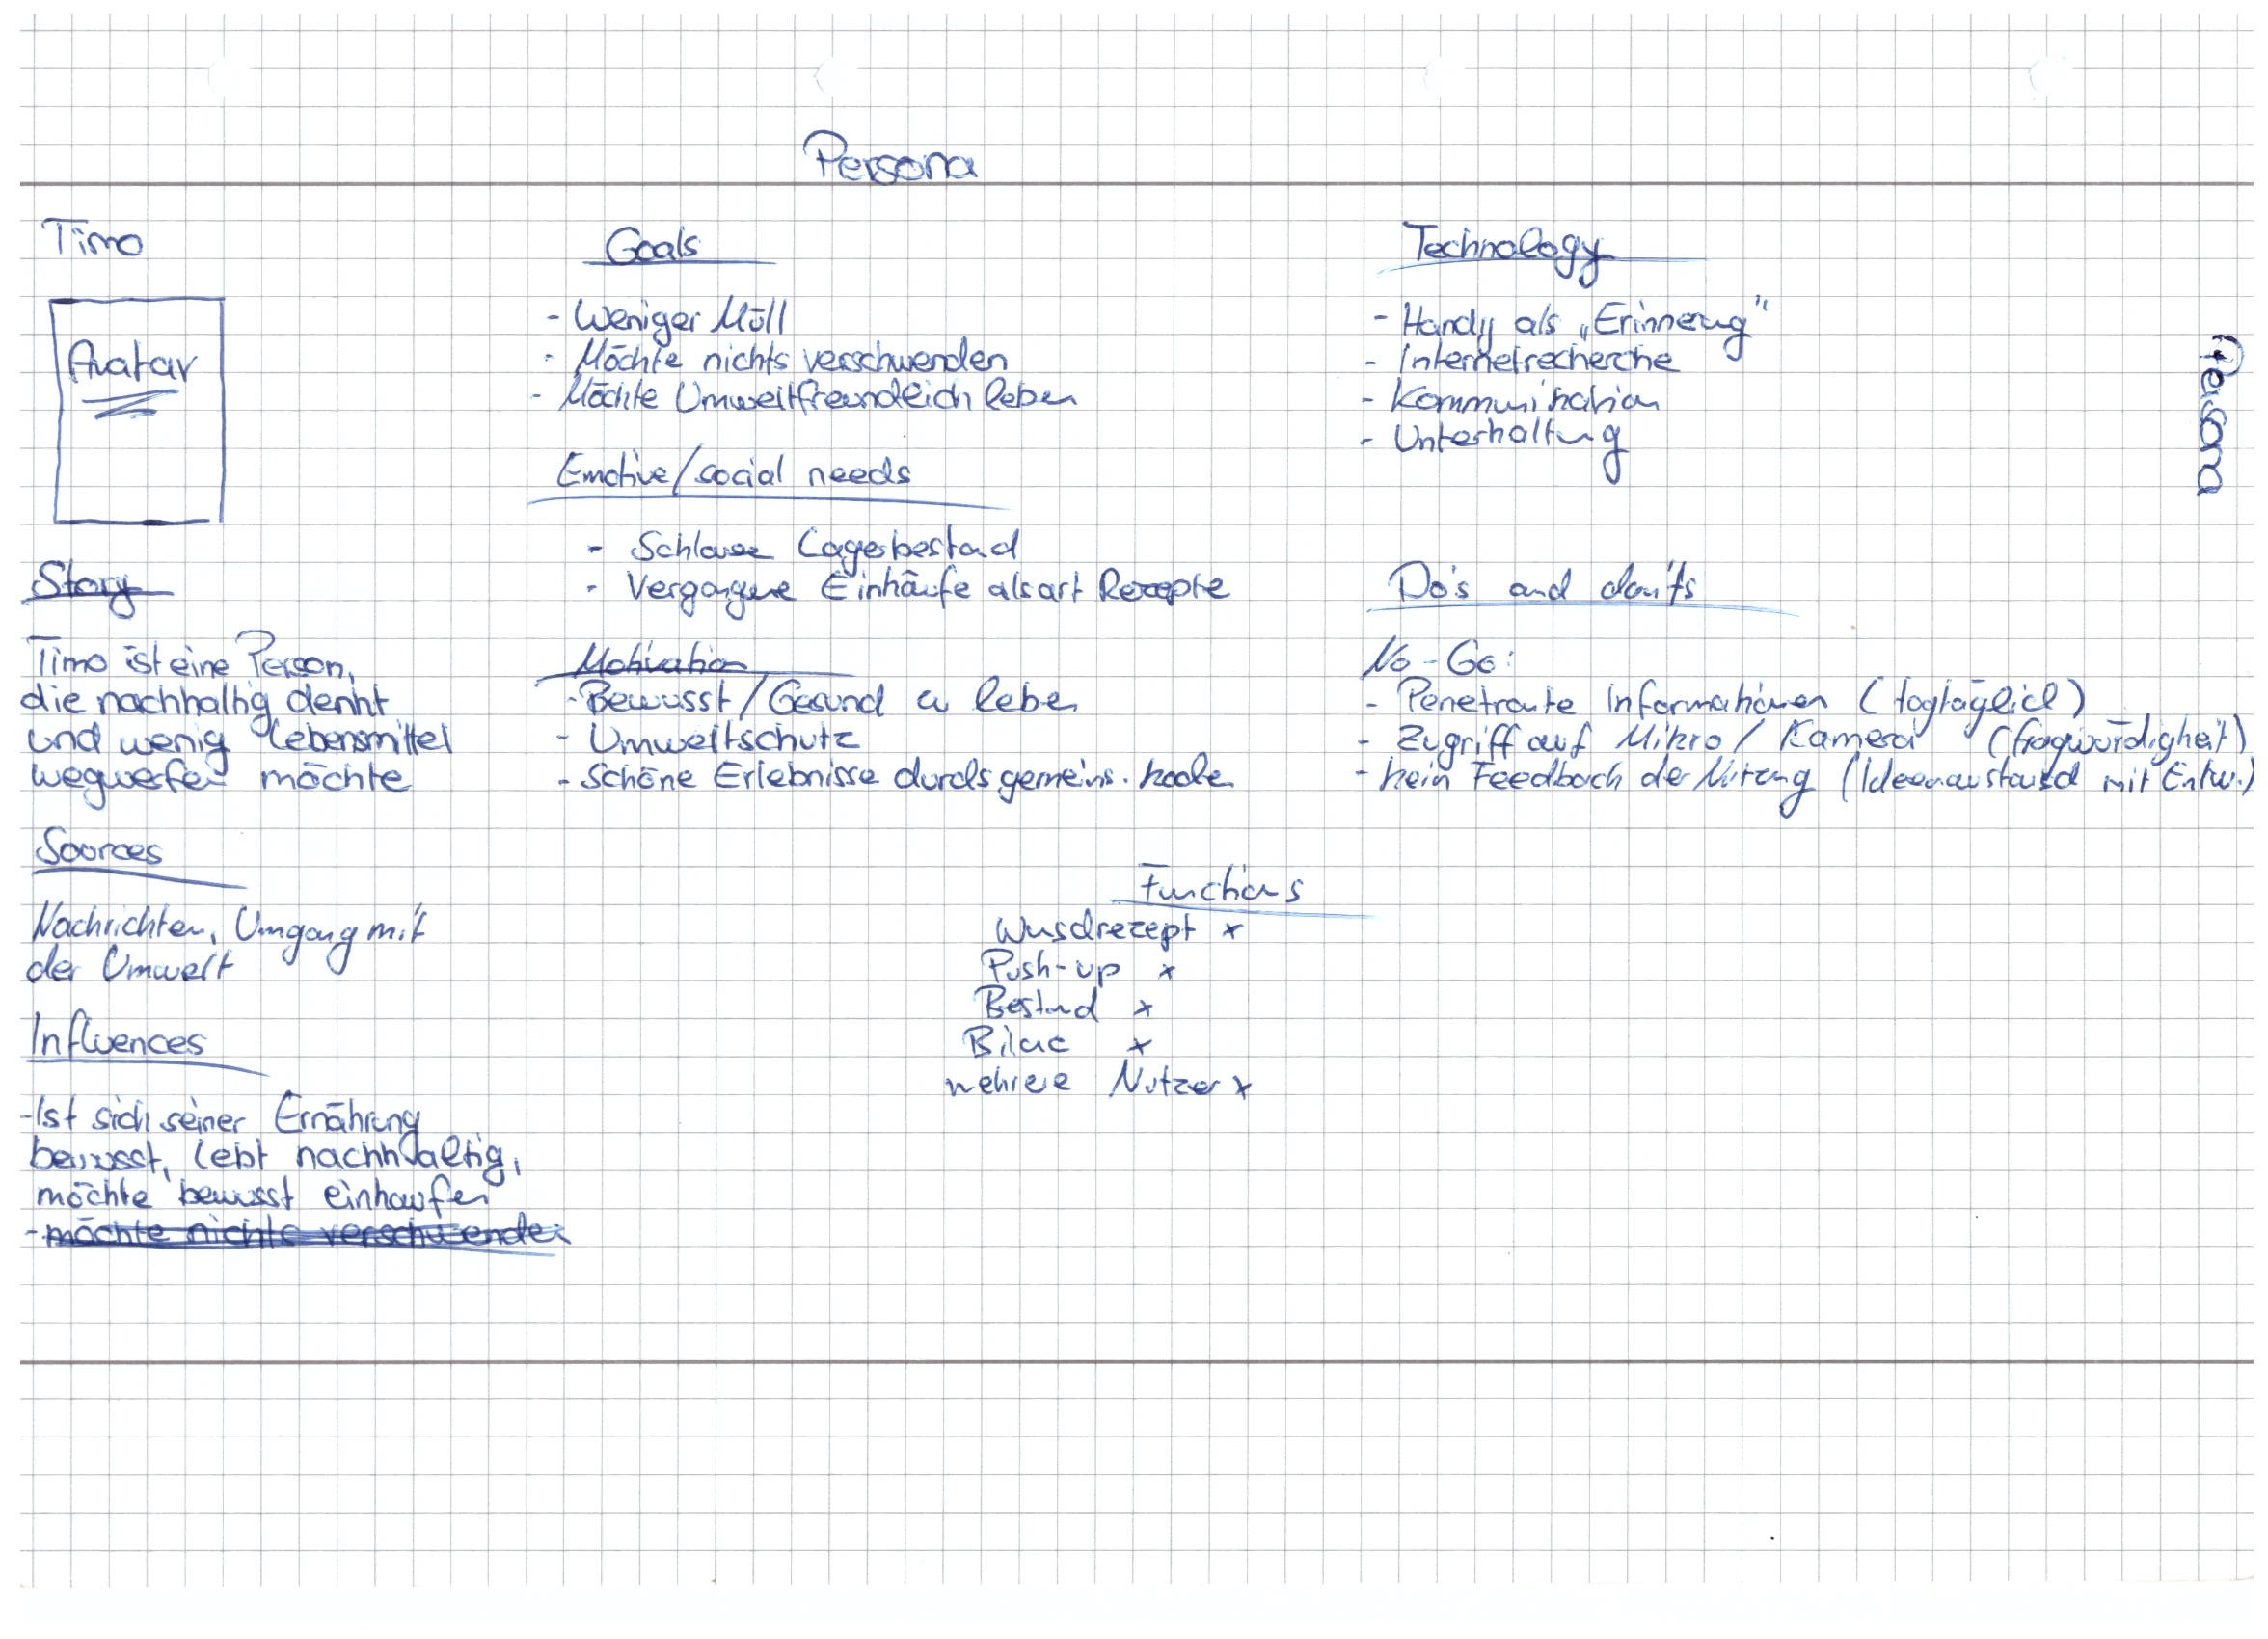 Persona
Timo
Avatar
Story
Timo ist eine Person,
die nachhaltig denkt
und wenig Lebensmittel
wegwerfen möchte
Sources
Nachrichten, Umgang mit
der Umwelt
Influences
- Ist sich seiner Ernährung
bewusst, lebt nachhaltig,
möchte bewusst einkaufen
- möchte nichts verschwenden
Goals
- Weniger Müll
- Möchte nichts verschwenden
- Möchte Umweltfreundleich leben
Emotive/social needs
- Schlauer Lagerbestand
- Vergangene Einkäufe als art Rezepte
Motivation
- Bewusst/Gesund zu leben
- Umweltschutz
- Schöne Erlebnisse durchs gemeins. kochen
Functions
Wunschrezept x
Push-up x
Bestand x
Bilanz x
mehrere Nutzer x
Technology
- Handy als „Erinnerung"
- Internetrecherche
- Kommunikation
- Unterhaltung
Do's and dont's
No-Go:
- Penetrante Informationen (tagtäglich)
- Zugriff auf Mikro/Kamera (fragwürdigkeit)
- kein Feedback der Nutzung (Ideenaustausch mit Entw.)
Persona